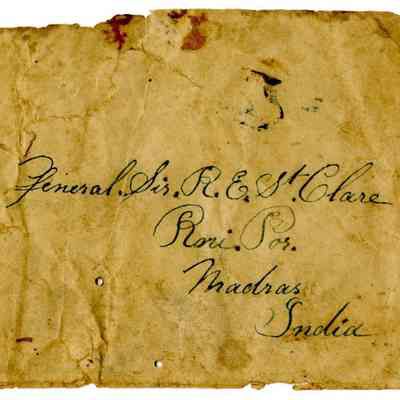 General. Sir. R. E. St. Clare
Rni. Por.
Madras
India